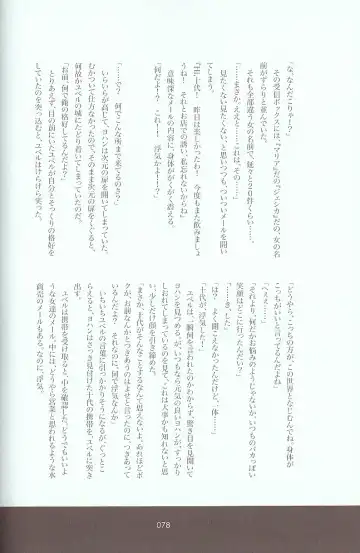 「な、なんだこりゃ!?」
その受信ボックスには、「マリア」だの「ジェシカ」だの、女の名
前がずらりと並んでいた。
それも全部違う女の名前で、延々と20件くらい……。
「……まさか、ええと……これは、その……」
見たくない見たくない、と思いつつも、ついついメールを開い
てしまう。
『Hi、十代! 昨日は楽しかったわ! 今度もまた飲みましょ
うね! それとお店での誘い、私忘れないからね』
意味深なメールの内容に、身体ががくがく震える。
「何だよー!? これー!! 浮気かよー!?」
「……で? 何でこんな所まで来てるのさ?」
いらいらが高じて、ヨハンは次元の扉をくぐってしまった。
むかついて仕方なかったので、そのまま次元の扉をくぐると、
何故かユベルの城にたどり着いてしまっていたのだ。
「お前、何で俺の格好してるんだよ?」
とりあえず、目の前にいたユベルが自分とそっくりの格好を
していたのを突っ込むと、ユベルはけらけら笑った。
「どうやら、こっちの方が、この世界となじむんでね。身体が
こっちがいいと言ってるのさ」
「へええ……」
「それより、何だかお悩みのようじゃないか。いつものバカっぽい
笑顔はどこに行ったんだい?」
「……きした」
「は? よく聞こえなかったんだけど、一体……」
「十代が、浮気した!」
ユベルは、一瞬何を言われたのかわからず、驚き目を見開いて
ヨハンを見つめる。が、いつもなら元気の良いヨハンが、すっかり
しおれてしまっているのを見て、これは大事かも知れないと思
い少しだけ顔を引き締めた。
「まさか、十代がそんなことするなんて思えないよ。あれほどボ
クが、お前なんかとつきあうのはよせと言ったのに、つきあって
いるんだよ? それなのに、何で浮気なんか」
いちいちユベルの言葉に引っかかりそうになるが、ぐっとこ
らえると、ヨハンはさっき見付けた十代の携帯を、ユベルに突き
出した。
ユベルは携帯を受け取ると、中を確認した。どうでもいいよ
うな女達のメール。中には、どうやら営業と思われるような水
商売のメールもあるし、なのに、浮気。
078